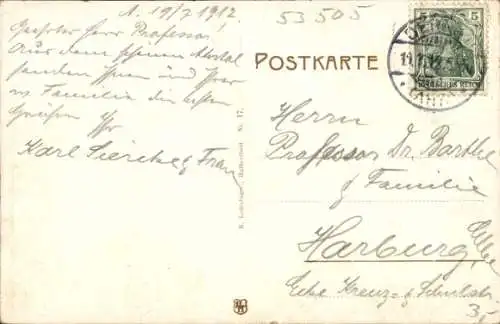 A. 19/7 1912.
53505
Geehrter Herr Professor!
Aus dem schönen Ahrtal
senden Ihnen und Ihrer
w. Familie die besten
Grüßen Ihr
Karl Siercke & Frau
POSTKARTE
5
DEUTSCHES REICH
Herrn
Professor Dr. Barthe
& Familie
Harburg, Elbe
Ecke Kreuz- & Schulstr